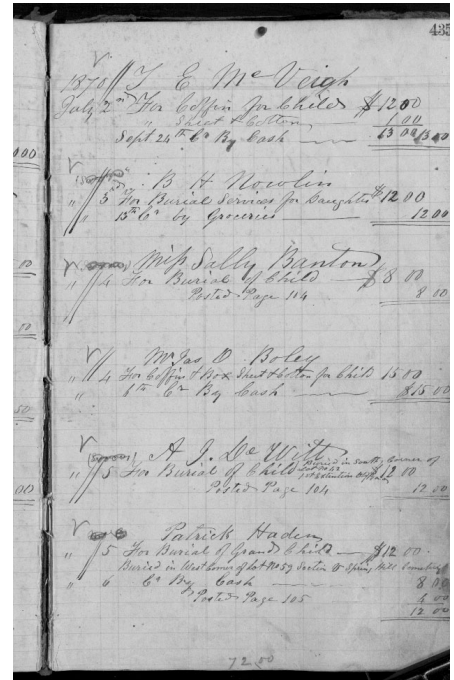 435
1870 T E McVeigh
July 2nd For Coffin for Child $12 00
" Sheet & Cotton 1.00
Sept. 24th Cr By Cash 13 00 13 00
B H Nowlin
" 3 For Burial Services for Daughter $12 00
" 15th Cr by Groceries 12 00
Miss Sally Banton
" 4 For Burial of Child $8 00
Posted Page 104 8 00
Mr Jas O. Boley
" 4 For Coffin & Box Sheet & Cotton for Child 15 00
" 6th Cr By Cash $15 00
A J. De Witt
" 5 For Burial of Child Buried in South Corner of $12 00
Posted Page 104 12 00
Patrick Haden
" 5 For Burial of Grand Child $12 00
Buried in West Corner of Lot No 59 Section Spring Hill
" 6 Cr By Cash 8 00
Posted Page 105 4 00
12 00
72.00